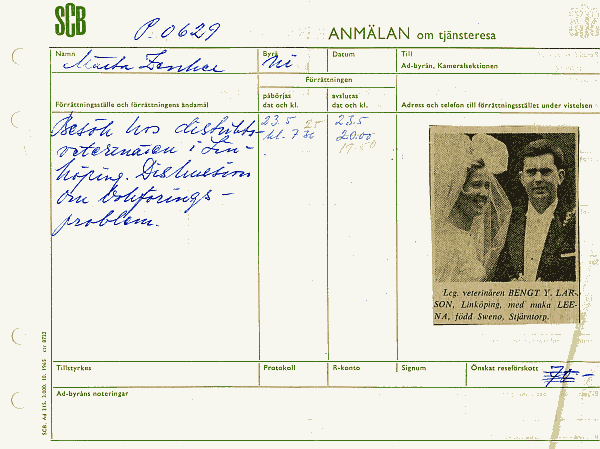 SCB
P. 0629
ANMÄLAN om tjänsteresa
Namn
Byrå
Datum
Till
Ad-byrån, Kameralsektionen
Förrättningen
Förrättningsställe och förrättningens ändamål
påbörjas dat och kl.
avslutas dat och kl.
Adress och telefon till förrättningsstället under vistelsen
Besök hos distrikts-
veterinären i Lin-
köping. Diskussion
om bokförings-
problem.
23.5
kl. 7
23.5
20.00
17.50
Leg. veterinären BENGT Y. LAR-
SON, Linköping, med maka LEE-
NA, född Sweno, Stjärntorp.
Tillstyrkes
Protokoll
R-konto
Signum
Önskat reseförskott
Ad-byråns noteringar